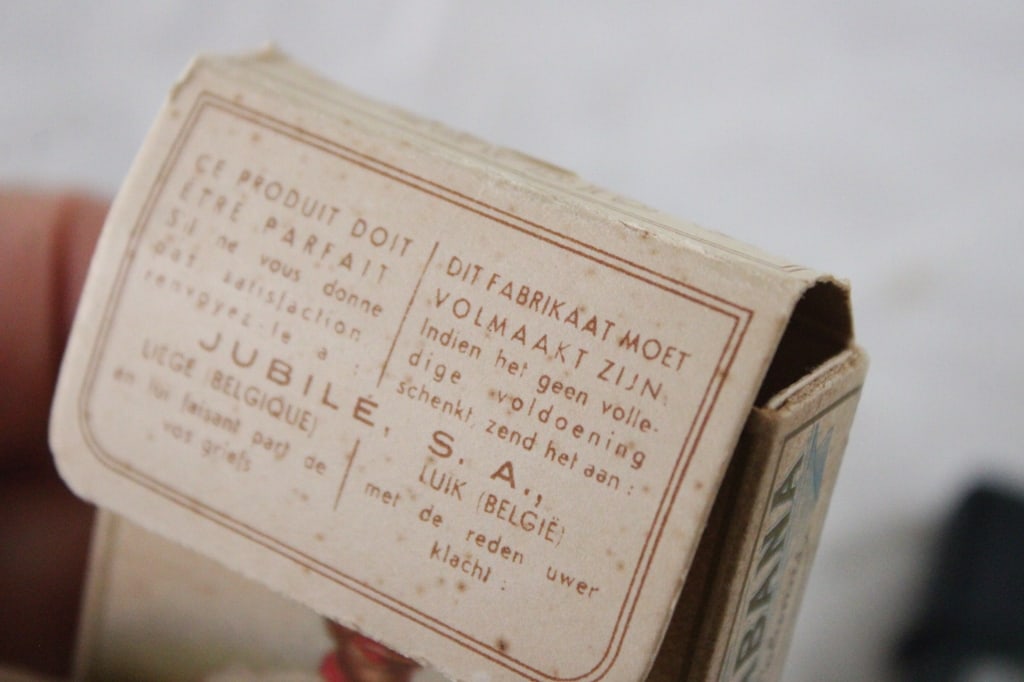 CE PRODUIT DOIT
ÊTRE PARFAIT
S'il ne vous donne
pas satisfaction
renvoyez-le à :
DIT FABRIKAAT MOET
VOLMAAKT ZIJN.
Indien het geen volle-
dige voldoening
schenkt, zend het aan :
JUBILÉ, S. A.,
LIÉGE (BELGIQUE)
en lui faisant part de
vos griefs
LUIK (BELGIË)
met de reden uwer
klacht :
ABANA